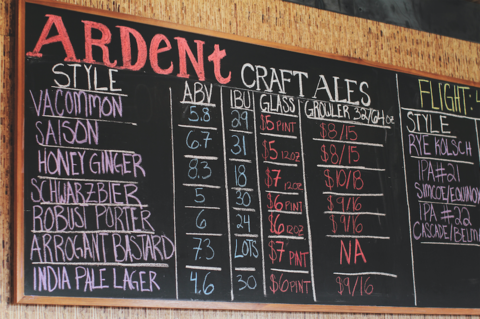 ARDENT CRAFT ALES
STYLE ABV IBU GLASS GROWLER 32/64 oz
VA COMMON 5.8 29 $5 PINT $8/15
SAISON 6.7 31 $5 12oz $8/15
HONEY GINGER 8.3 18 $7 12oz $10/18
SCHWARZBIER 5 30 $6 PINT $9/16
ROBUST PORTER 6 24 $6 12oz $9/16
ARROGANT BASTARD 7.3 LOTS $7 PINT NA
INDIA PALE LAGER 4.6 30 $6 PINT $9/16
FLIGHT:
STYLE
RYE KOLSCH
IPA #21
SIMCOE/EQUINOX
IPA #22
CASCADE/BELMA